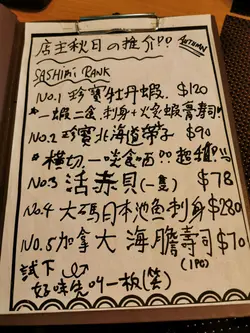 店主秋日の推介
AUTUMN
SASHIMI RANK
No.1 珍寶牡丹蝦 $120
一蝦二食 刺身+火炙蝦膏寿司
No.2 珍寶北海道帶子 $90
*橫切一啖食晒 超正!!!
No.3 活赤貝(一隻) $78
No.4 大碼日本池魚刺身 $280
No.5 加拿大海膽寿司 $70
(1PC)
試下
好味先叫一板(笑)